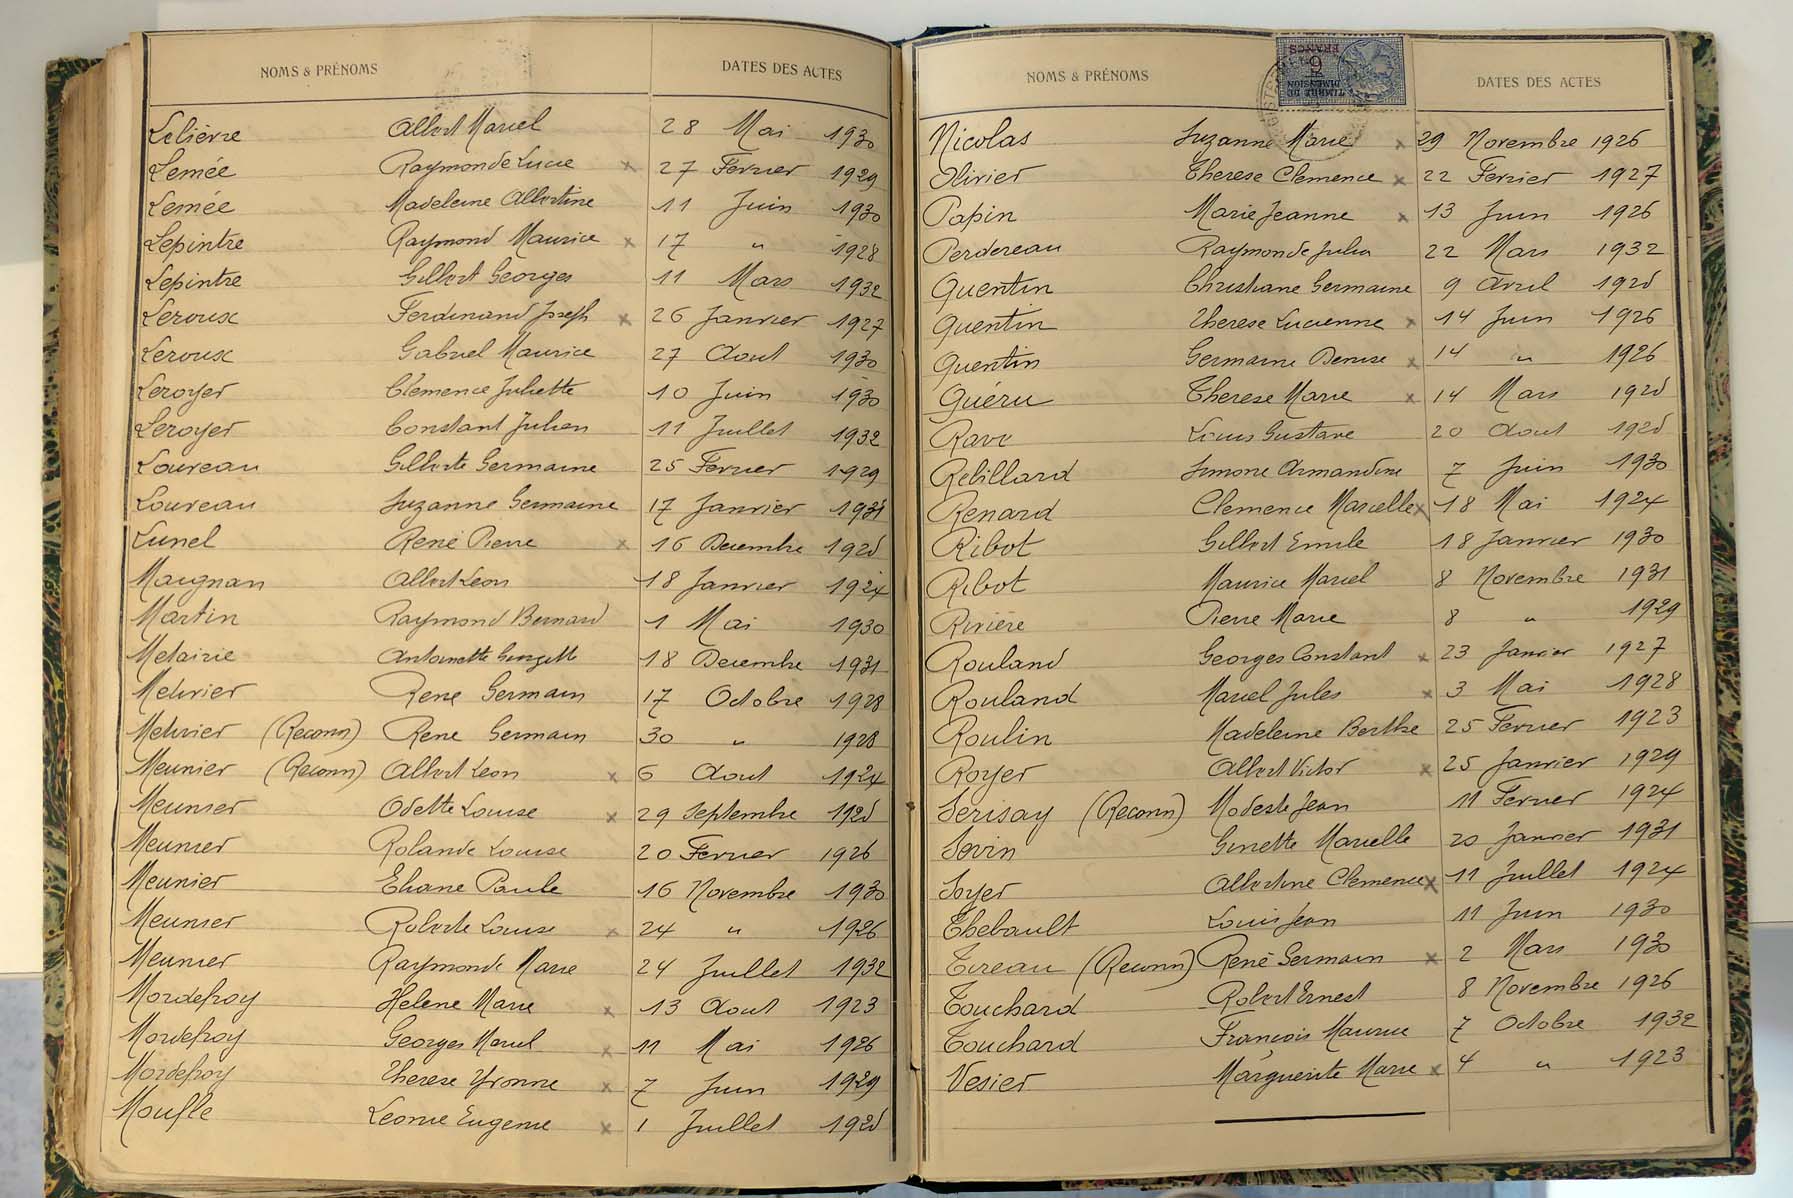 NOMS & PRÉNOMS DATES DES ACTES
Lelièvre Albert Marcel 28 Mai 1930
Lemée Raymonde Lucie x 27 Fevrier 1929
Lemée Madeleine Albertine 11 Juin 1930
Lepintre Raymond Maurice x 17 " 1928
Lepintre Gilbert Georges 11 Mars 1932
Leroux Ferdinand Joseph x 26 Janvier 1927
Leroux Gabriel Maurice 27 Aout 1930
Leroyer Clémence Juliette 10 Juin 1930
Leroyer Constant Julien 11 Juillet 1932
Loureau Gilberte Germaine 25 Fevrier 1929
Loureau Suzanne Germaine 17 Janvier 1931
Lunel René Pierre x 16 Decembre 1925
Maignan Albert Leon 18 Janvier 1924
Martin Raymond Bernard 1 Mai 1930
Metairie Antoinette Georgette 18 Decembre 1931
Metivier Rene Germain 17 Octobre 1928
Metivier (Reconn) Rene Germain 30 " 1928
Meunier (Reconn) Albert Leon x 6 Aout 1924
Meunier Odette Louise x 29 Septembre 1925
Meunier Rolande Louise 20 Fevrier 1926
Meunier Eliane Paule 16 Novembre 1930
Meunier Roberte Louise x 24 " 1926
Meunier Raymonde Marie 24 Juillet 1932
Mordefroy Helene Marie x 13 Aout 1923
Mordefroy Georges Marcel x 11 Mai 1926
Mordefroy Therese Yvonne x 7 Juin 1929
Moufle Leonie Eugenie x 1 Juillet 1925
NOMS & PRÉNOMS DATES DES ACTES
TIMBRE DE
DIMENSION
6
FRANCS
Nicolas Suzanne Marie x 29 Novembre 1926
Olivier Therese Clemence x 22 Fevrier 1927
Papin Marie Jeanne x 13 Juin 1926
Perdereau Raymonde Julia 22 Mars 1932
Quentin Christiane Germaine 9 Avril 1925
Quentin Therese Lucienne x 14 Juin 1926
Quentin Germaine Denise x 14 " 1926
Quéru Therese Marie x 14 Mars 1925
Rave Louis Gustave 20 Aout 1925
Rebillard Simone Armandine 7 Juin 1930
Renard Clemence Marcelle x 18 Mai 1924
Ribot Gilbert Emile 18 Janvier 1930
Ribot Maurice Marcel 8 Novembre 1931
Rivière Pierre Marie 8 " 1929
Rouland Georges Constant x 23 Janvier 1927
Rouland Marcel Jules x 3 Mai 1928
Roulin Madeleine Berthe 25 Fevrier 1923
Royer Albert Victor x 25 Janvier 1929
Serisay (Reconn) Modeste Jean 11 Fevrier 1924
Sevin Ginette Marcelle 20 Janvier 1931
Soyer Albertine Clemence x 11 Juillet 1924
Thebault Louis Jean 11 Juin 1930
Tireau (Reconn) René Germain x 2 Mars 1930
Touchard Robert Ernest 8 Novembre 1926
Touchard François Maurice 7 Octobre 1932
Vesier Marguerite Marie x 4 " 1923